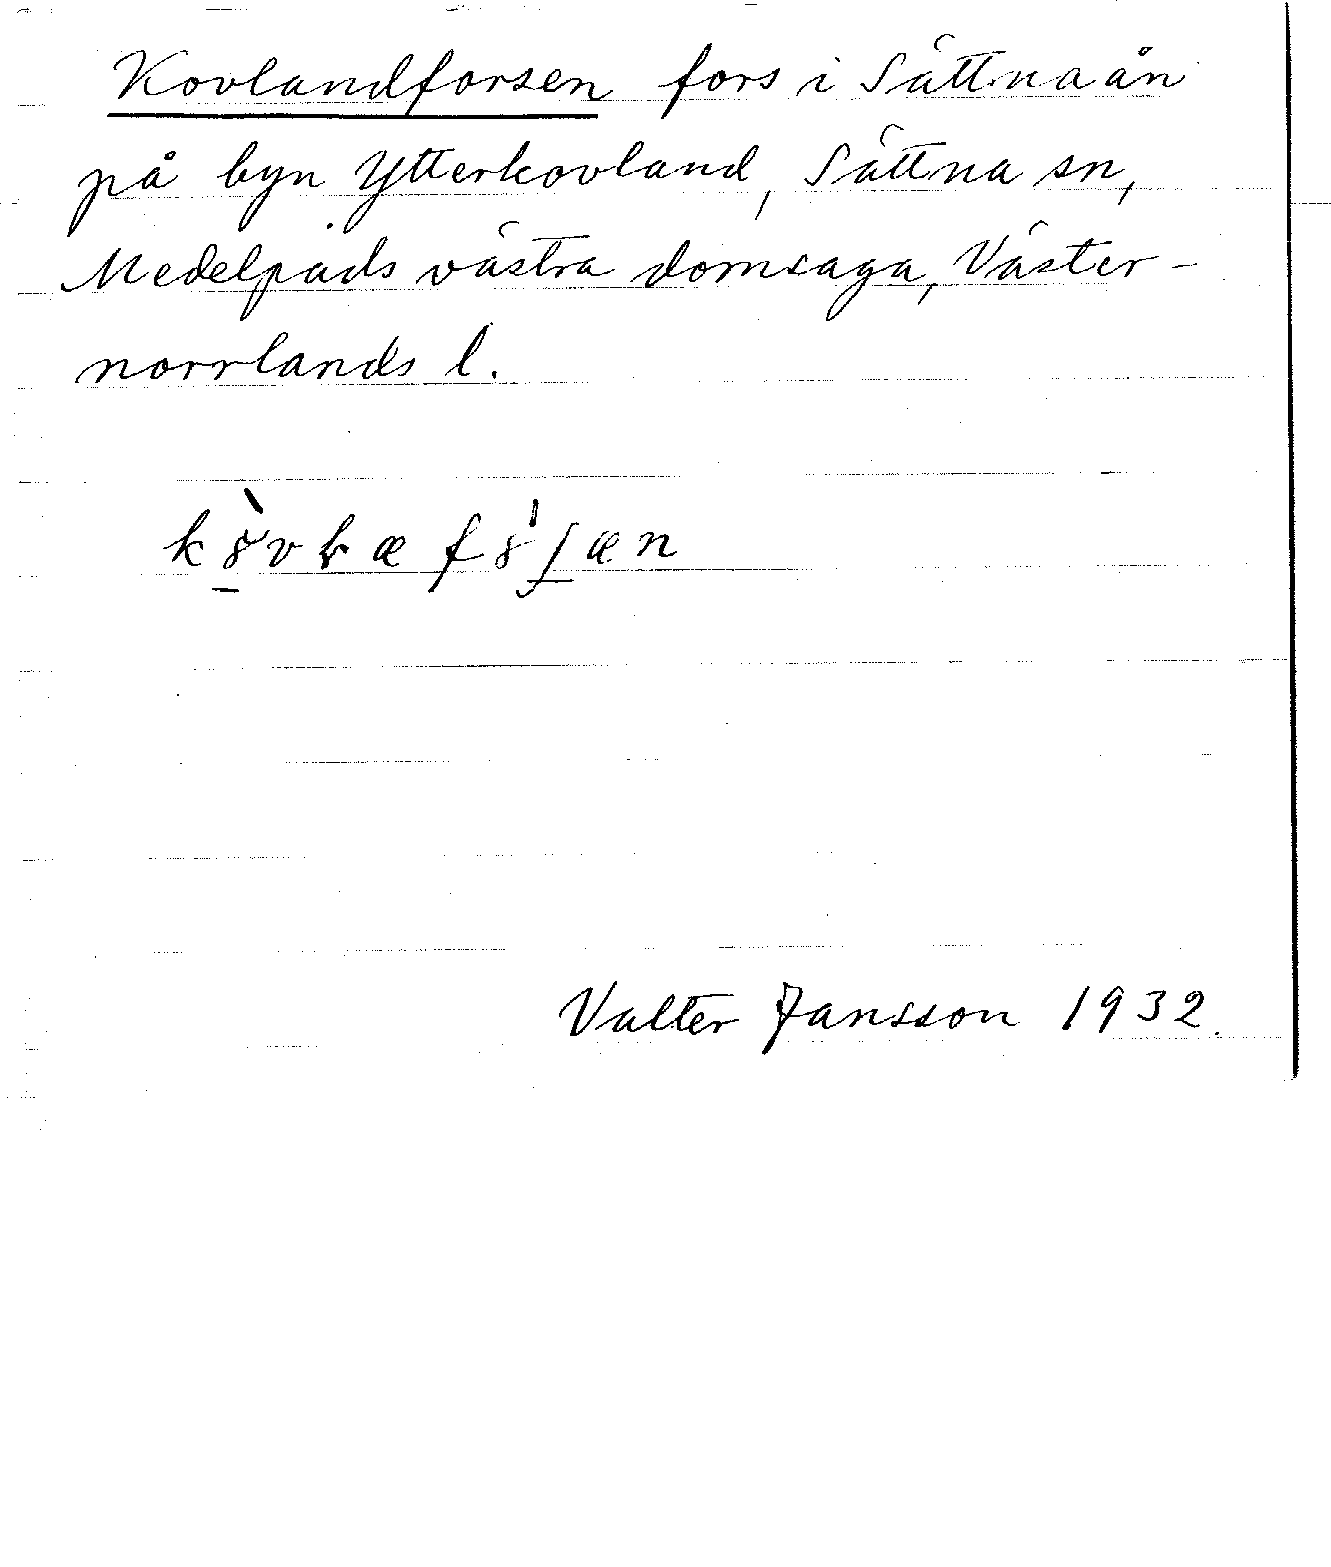 Kovlandforsen fors i Sättnaån
på byn Ytterkovland, Sättna sn,
Medelpads västra domsaga, Väster-
norrlands l.
Valter Jansson 1932.